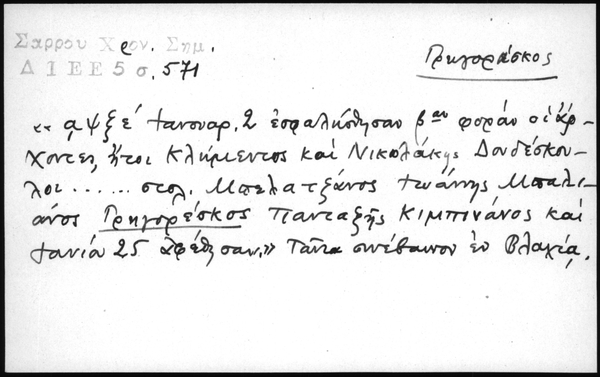 Σαρρου Χρον. Σημ.
Δ Ι Ε Ε 5 σ. 571
Γρηγοράσκος
«͵αψξε´ Ιανουαρ. 2 ἐσφαλήσθησαν βαν φορὰν οἱ ἄρ-
χοντες, ἤτοι Κλήμεντος καὶ Νικολάκης Δουδέσκου-
λοι...... στολ. Μπελατζάνος Ιωάννης Μπαλι-
άνος Γρηγορέσκος Πανταζῆς Κιμπινάνος καὶ
Ιανία 25 ἀφέθησαν.» Ταῦτα συνέβαινον ἐν Βλαχίᾳ.